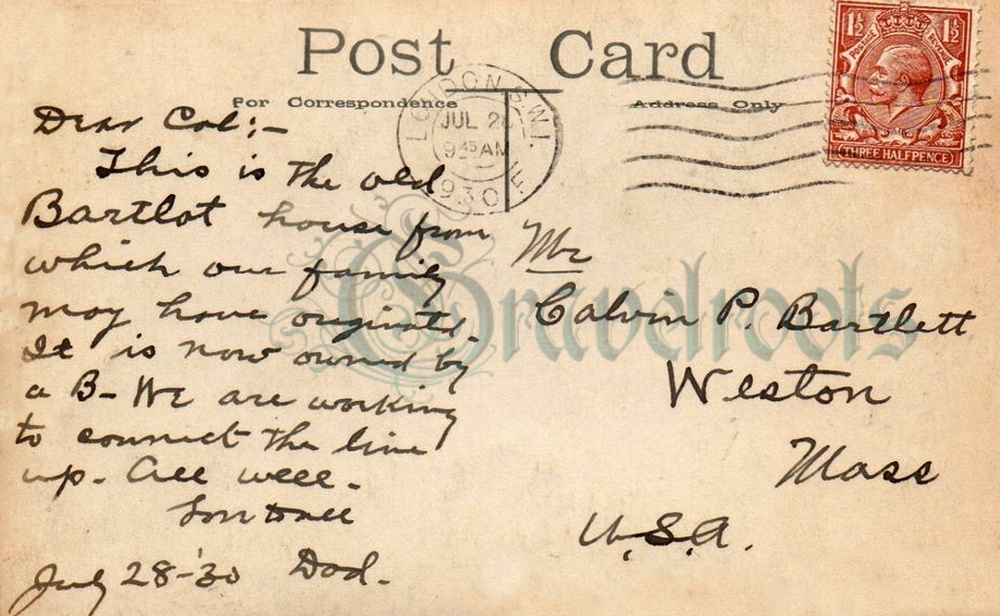 Post Card
For Correspondence
Address Only
LONDON.S.W.1.
JUL 28
9 45 AM
1930
F
1½ 1½
POSTAGE REVENUE
THREE HALFPENCE
Dear Cal:-
This is the old
Bartlot house from
which our family
may have originated
It is now owned by
a B- We are working
to connect the line
up. All well.
July 28-'30 Dad.
Mr
Calvin P. Bartlett
Weston
Mass
U.S.A.
Gravelroots